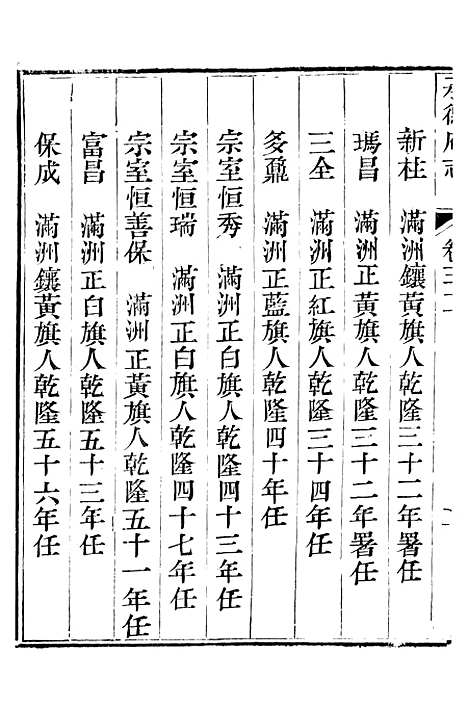 新柱 滿洲鑲黃旗人乾隆三十二年署任
瑪昌 滿洲正黃旗人乾隆三十二年署任
三全 滿洲正紅旗人乾隆三十四年任
多鼐 滿洲正藍旗人乾隆四十年任
宗室恒秀 滿洲正白旗人乾隆四十三年任
宗室恒瑞 滿洲正白旗人乾隆四十七年任
宗室恒善保 滿洲正黃旗人乾隆五十一年任
富昌 滿洲正白旗人乾隆五十三年任
保成 滿洲鑲黃旗人乾隆五十六年任